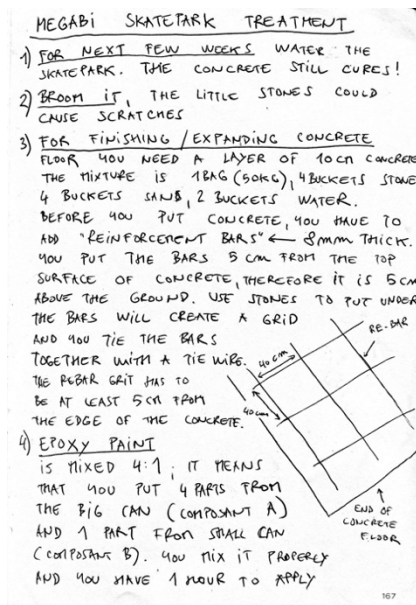 MEGABI SKATEPARK TREATMENT
1) FOR NEXT FEW WEEKS WATER THE
SKATEPARK. THE CONCRETE STILL CURES!
2) BROOM IT, THE LITTLE STONES COULD
CAUSE SCRATCHES
3) FOR FINISHING / EXPANDING CONCRETE
FLOOR YOU NEED A LAYER OF 10cm CONCRETE
THE MIXTURE IS 1BAG (50KG), 4 BUCKETS STONE
4 BUCKETS SAND, 2 BUCKETS WATER.
BEFORE YOU PUT CONCRETE, YOU HAVE TO
ADD "REINFORCEMENT BARS" ← 8mm THICK.
YOU PUT THE BARS 5 cm FROM THE TOP
SURFACE OF CONCRETE, THEREFORE IT IS 5 cm
ABOVE THE GROUND. USE STONES TO PUT UNDER
THE BARS WILL CREATE A GRID
AND YOU TIE THE BARS
TOGETHER WITH A TIE WIRE.
THE REBAR GRIT HAS TO
BE AT LEAST 5cm FROM
THE EDGE OF THE CONCRETE.
RE-BAR
40 cm
40cm
END OF
CONCRETE
FLOOR
4) EPOXY PAINT
IS MIXED 4:1; IT MEANS
THAT YOU PUT 4 PARTS FROM
THE BIG CAN (COMPOSANT A)
AND 1 PART FROM SMALL CAN
(COMPOSANT B). YOU MIX IT PROPERLY
AND YOU HAVE 1 HOUR TO APPLY
167